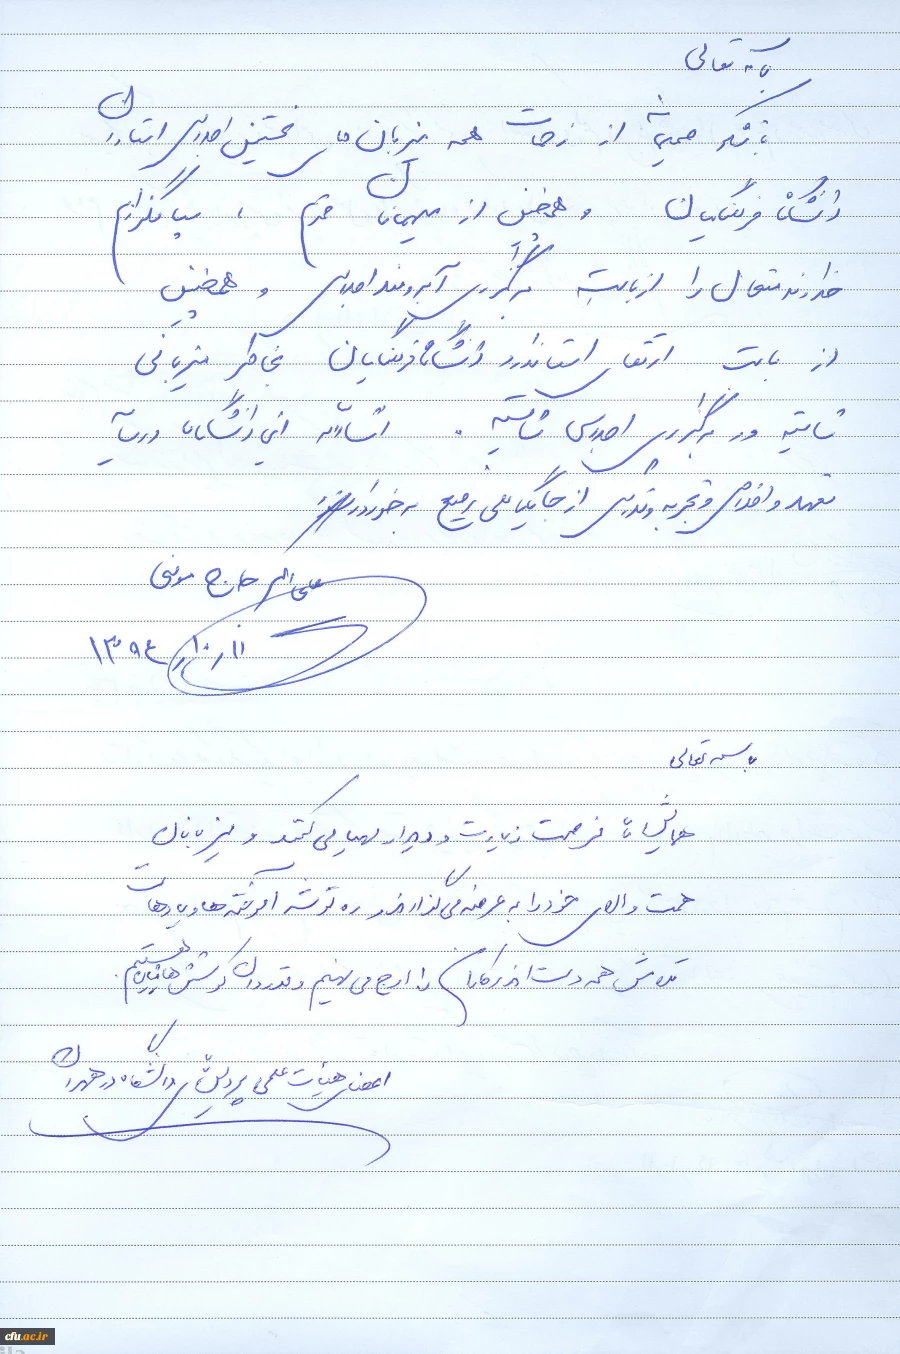 باسمه تعالی
با تشکر صمیمانه از زحمات همه میزبان های نخستین اجلاس استادان
دانشگاه فرهنگیان و همچنین از میهمانان محترم ، سپاسگزاریم
خداوند متعال را از بابت برگزاری آبرومند اجلاس و همچنین
از بابت ارتقای استاندارد دانشگاه فرهنگیان بخاطر میزبانی
شایسته و برگزاری اجلاس شایسته . انشاالله این دانشگاه در سایه
تعهد و اخلاص و تجربه و تلاش از جایگاه علمی رفیع برخوردار
علی اکبر حاج مومنی
۱۱ / ۱۰ / ۱۳۹۴
باسمه تعالی
همایش ها فرصت زیارت و دیدار مهیا می کنند و میزبانان
همت والای خود را به عرضه می گذارند ره توشه آموخته ها و یادهاست
تلاش همه دست اندرکاران را ارج می نهیم و قدردان کوشش هایتان هستیم.
اعضای هیأت علمی پردیس دانشگاه در تهران
cfu.ac.ir